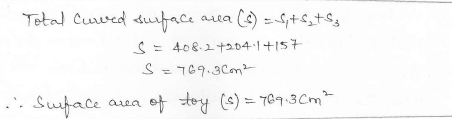 Total Curved surface area (s) = S₁+S₂+S₃
S = 408.2+204.1+157
S = 769.3Cm²
∴ Surface area of toy (s) = 769.3Cm²